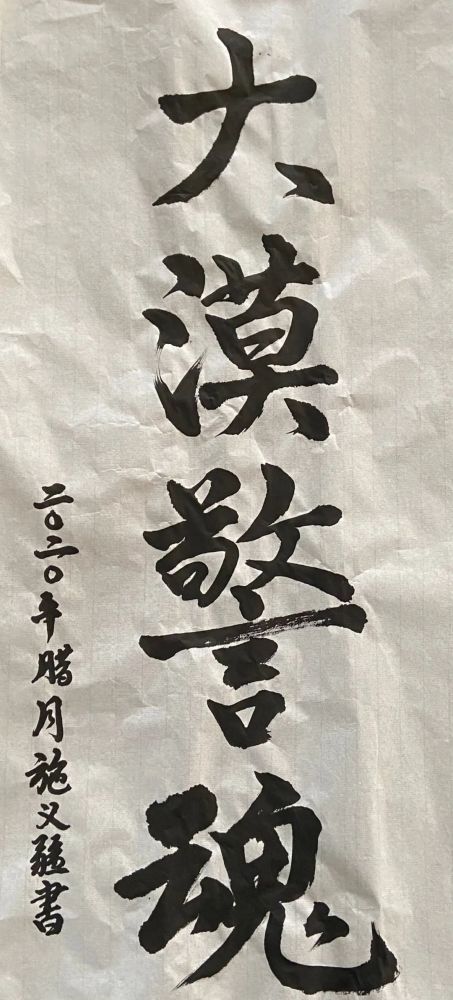 大漠警魂
二〇二〇年腊月施义书